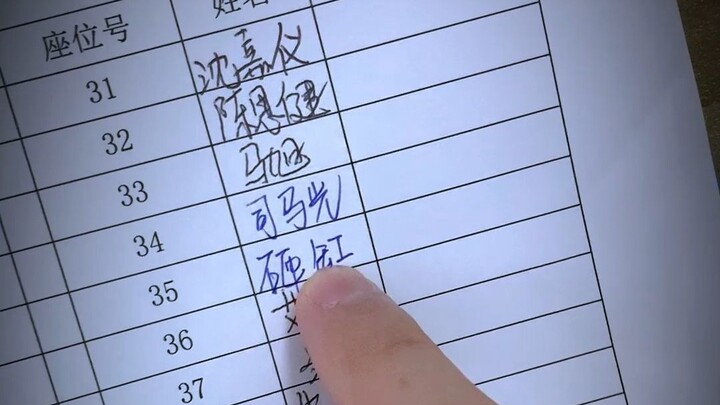 座位号 姓名
31 沈嘉仪
32 陈思健
33 马旭
34 司马光
35 砸缸
36
37